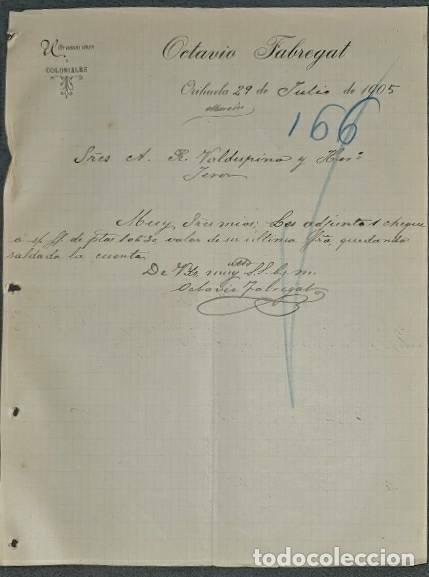 Ultramarinos
y
COLONIALES
Octavio Fabregat
Orihuela 29 de Julio de 1905
166
Sres A. R. Valdespino y Herº
Jerez
Muy Sres mios; Les adjunto 1 cheque
a s/ ff de ptas 106.30 valor de su ultima fra, quedando
saldada la cuenta.
De Vds muy atto S.S. b.s.m.
Octavio Fabregat
todocoleccion.net